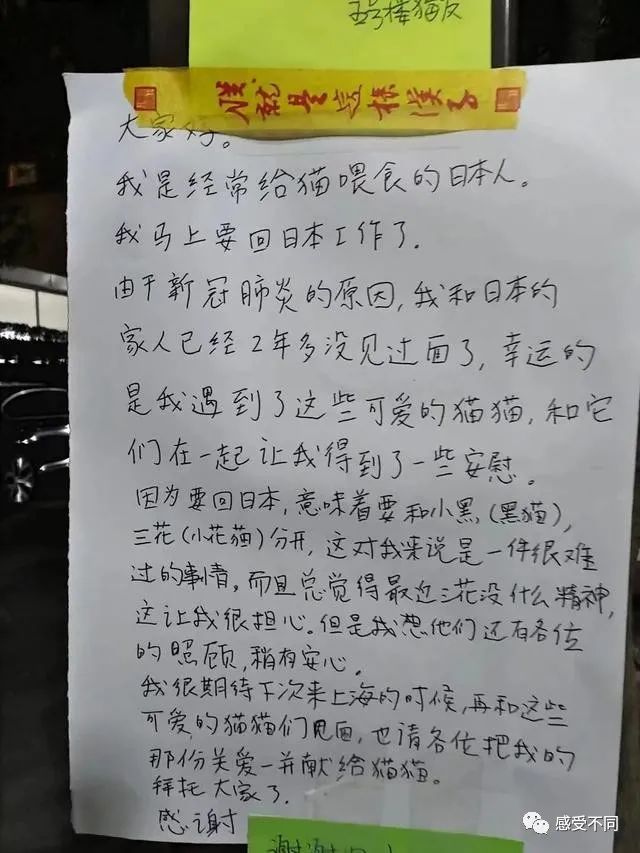 五号楼猫友
大家好。
我是经常给猫喂食的日本人。
我马上要回日本工作了.
由于新冠肺炎的原因,我和日本的
家人已经2年多没见过面了,幸运的
是我遇到了这些可爱的猫猫,和它
们在一起让我得到了一些安慰。
因为要回日本,意味着要和小黑(黑猫),
三花(小花猫)分开,这对我来说是一件很难
过的事情,而且总觉得最近三花没什么精神,
这让我很担心。但是我想他们还有各位
的照顾,稍有安心。
我很期待下次来上海的时候,再和这些
可爱的猫猫们见面,也请各位把我的
那份关爱一并献给猫猫。
拜托大家了.
感谢
感受不同